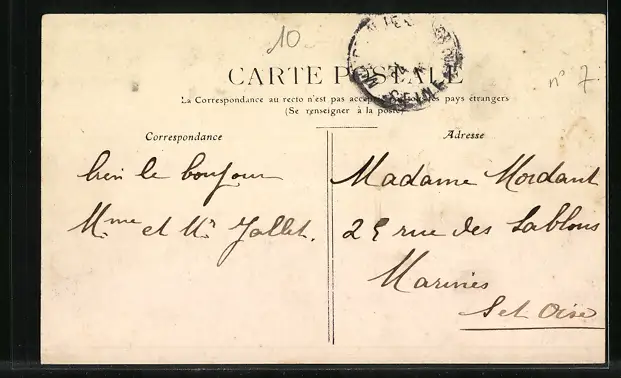 10
CARTE POSTALE
n° 7
La Correspondance au recto n'est pas acceptée pays étrangers
(Se renseigner à la poste)
Correspondance
Adresse
bien le bonjour
Mme et Mr Jallet.
Madame Mordant
rue des Sablons
Marines
S et Oise
SEINE